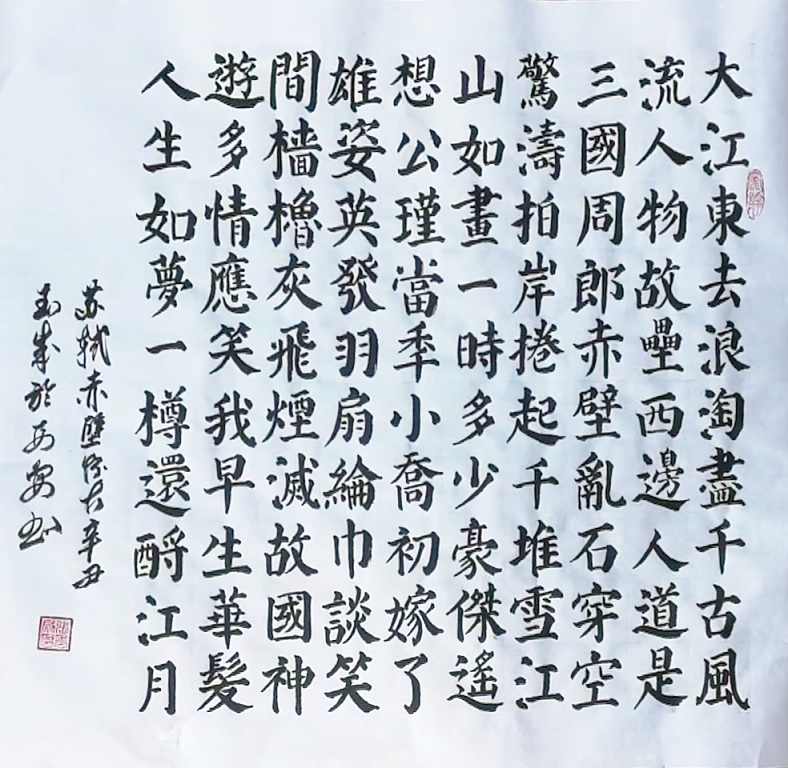 大江東去浪淘盡千古風
流人物故壘西邊人道是
三國周郎赤壁亂石穿空
驚濤拍岸捲起千堆雪江
山如畫一時多少豪傑遙
想公瑾當秊小喬初嫁了
雄姿英發羽扇綸巾談笑
間檣櫓灰飛煙滅故國神
遊多情應笑我早生華髮
人生如夢一樽還酹江月
苏軾赤壁怀古辛丑
於西安书